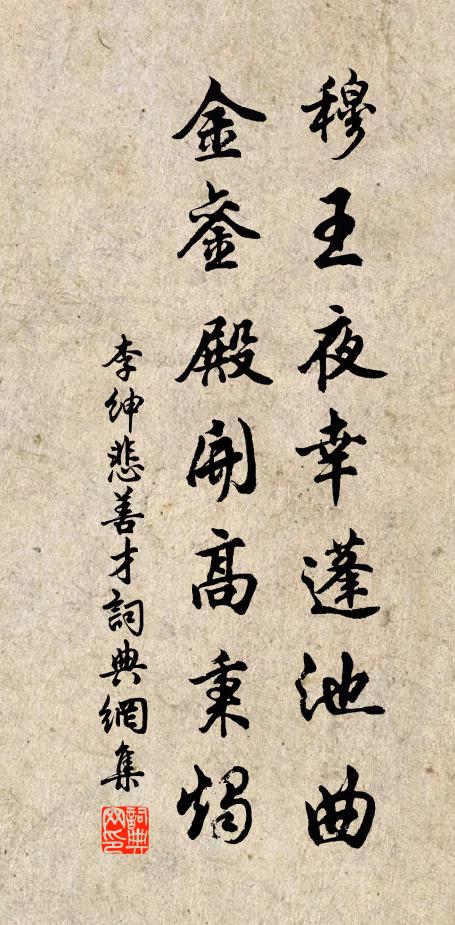 穆王夜幸蓬池曲
金銮殿開高秉燭
李紳悲善才詞典網集
詞典网印